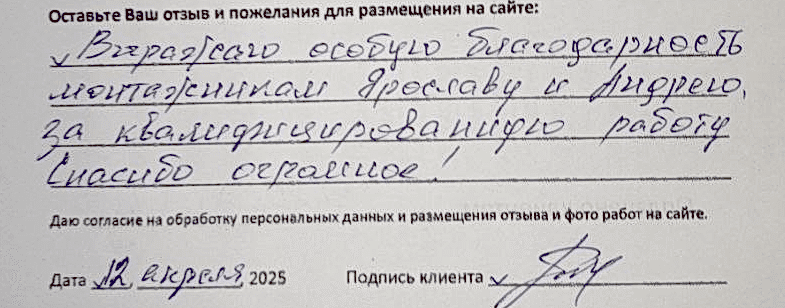 Оставьте Ваш отзыв и пожелания для размещения на сайте:
Выражаю особую благодарность
монтажникам Ярославу и Андрею,
за квалифицированную работу
Спасибо огромное!
Даю согласие на обработку персональных данных и размещения отзыва и фото работ на сайте.
Дата 12, апреля, 2025 Подпись клиента